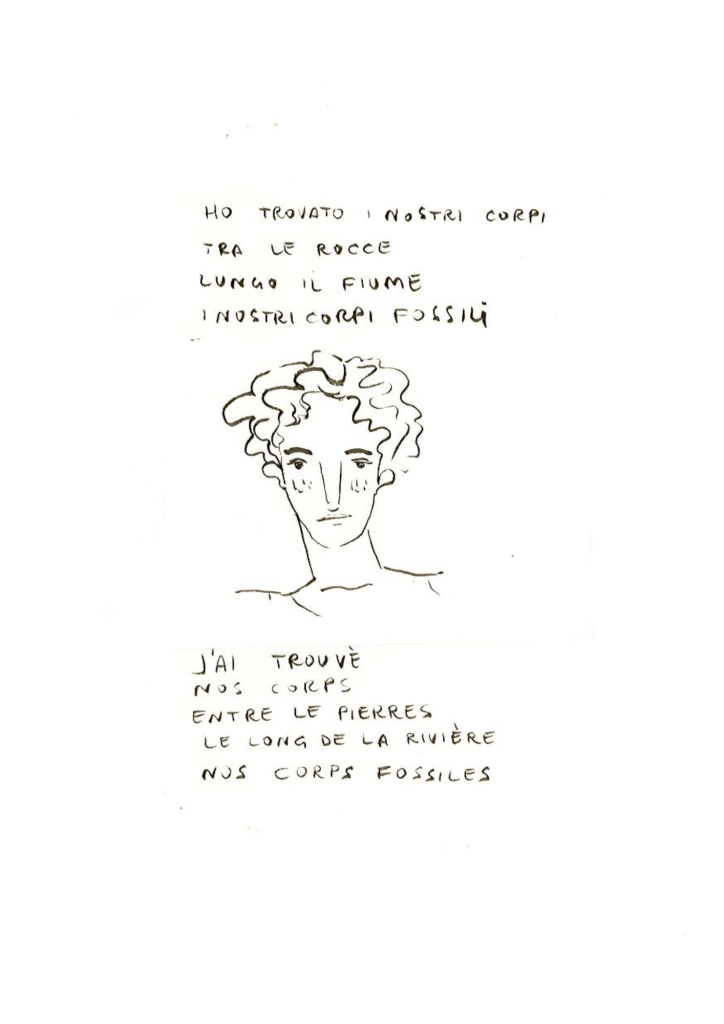 HO TROVATO I NOSTRI CORPI
TRA LE ROCCE
LUNGO IL FIUME
I NOSTRI CORPI FOSSILI
J'AI TROUVÈ
NOS CORPS
ENTRE LE PIERRES
LE LONG DE LA RIVIÈRE
NOS CORPS FOSSILES